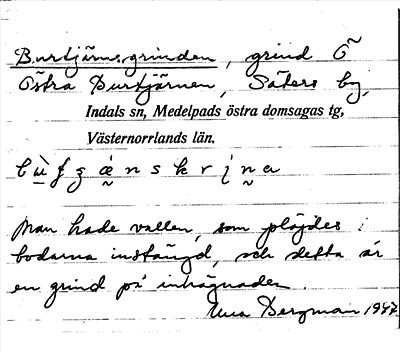 Burtjärnsgrinden, grind Ö
Östra Burtjärnen, Säters by,
Indals sn, Medelpads östra domsagas tg,
Västernorrlands län.
Man hade vallen, som plöjdes i
bodarna instängd, och detta är
en grind på inhägnaden.
Bergman 1947.